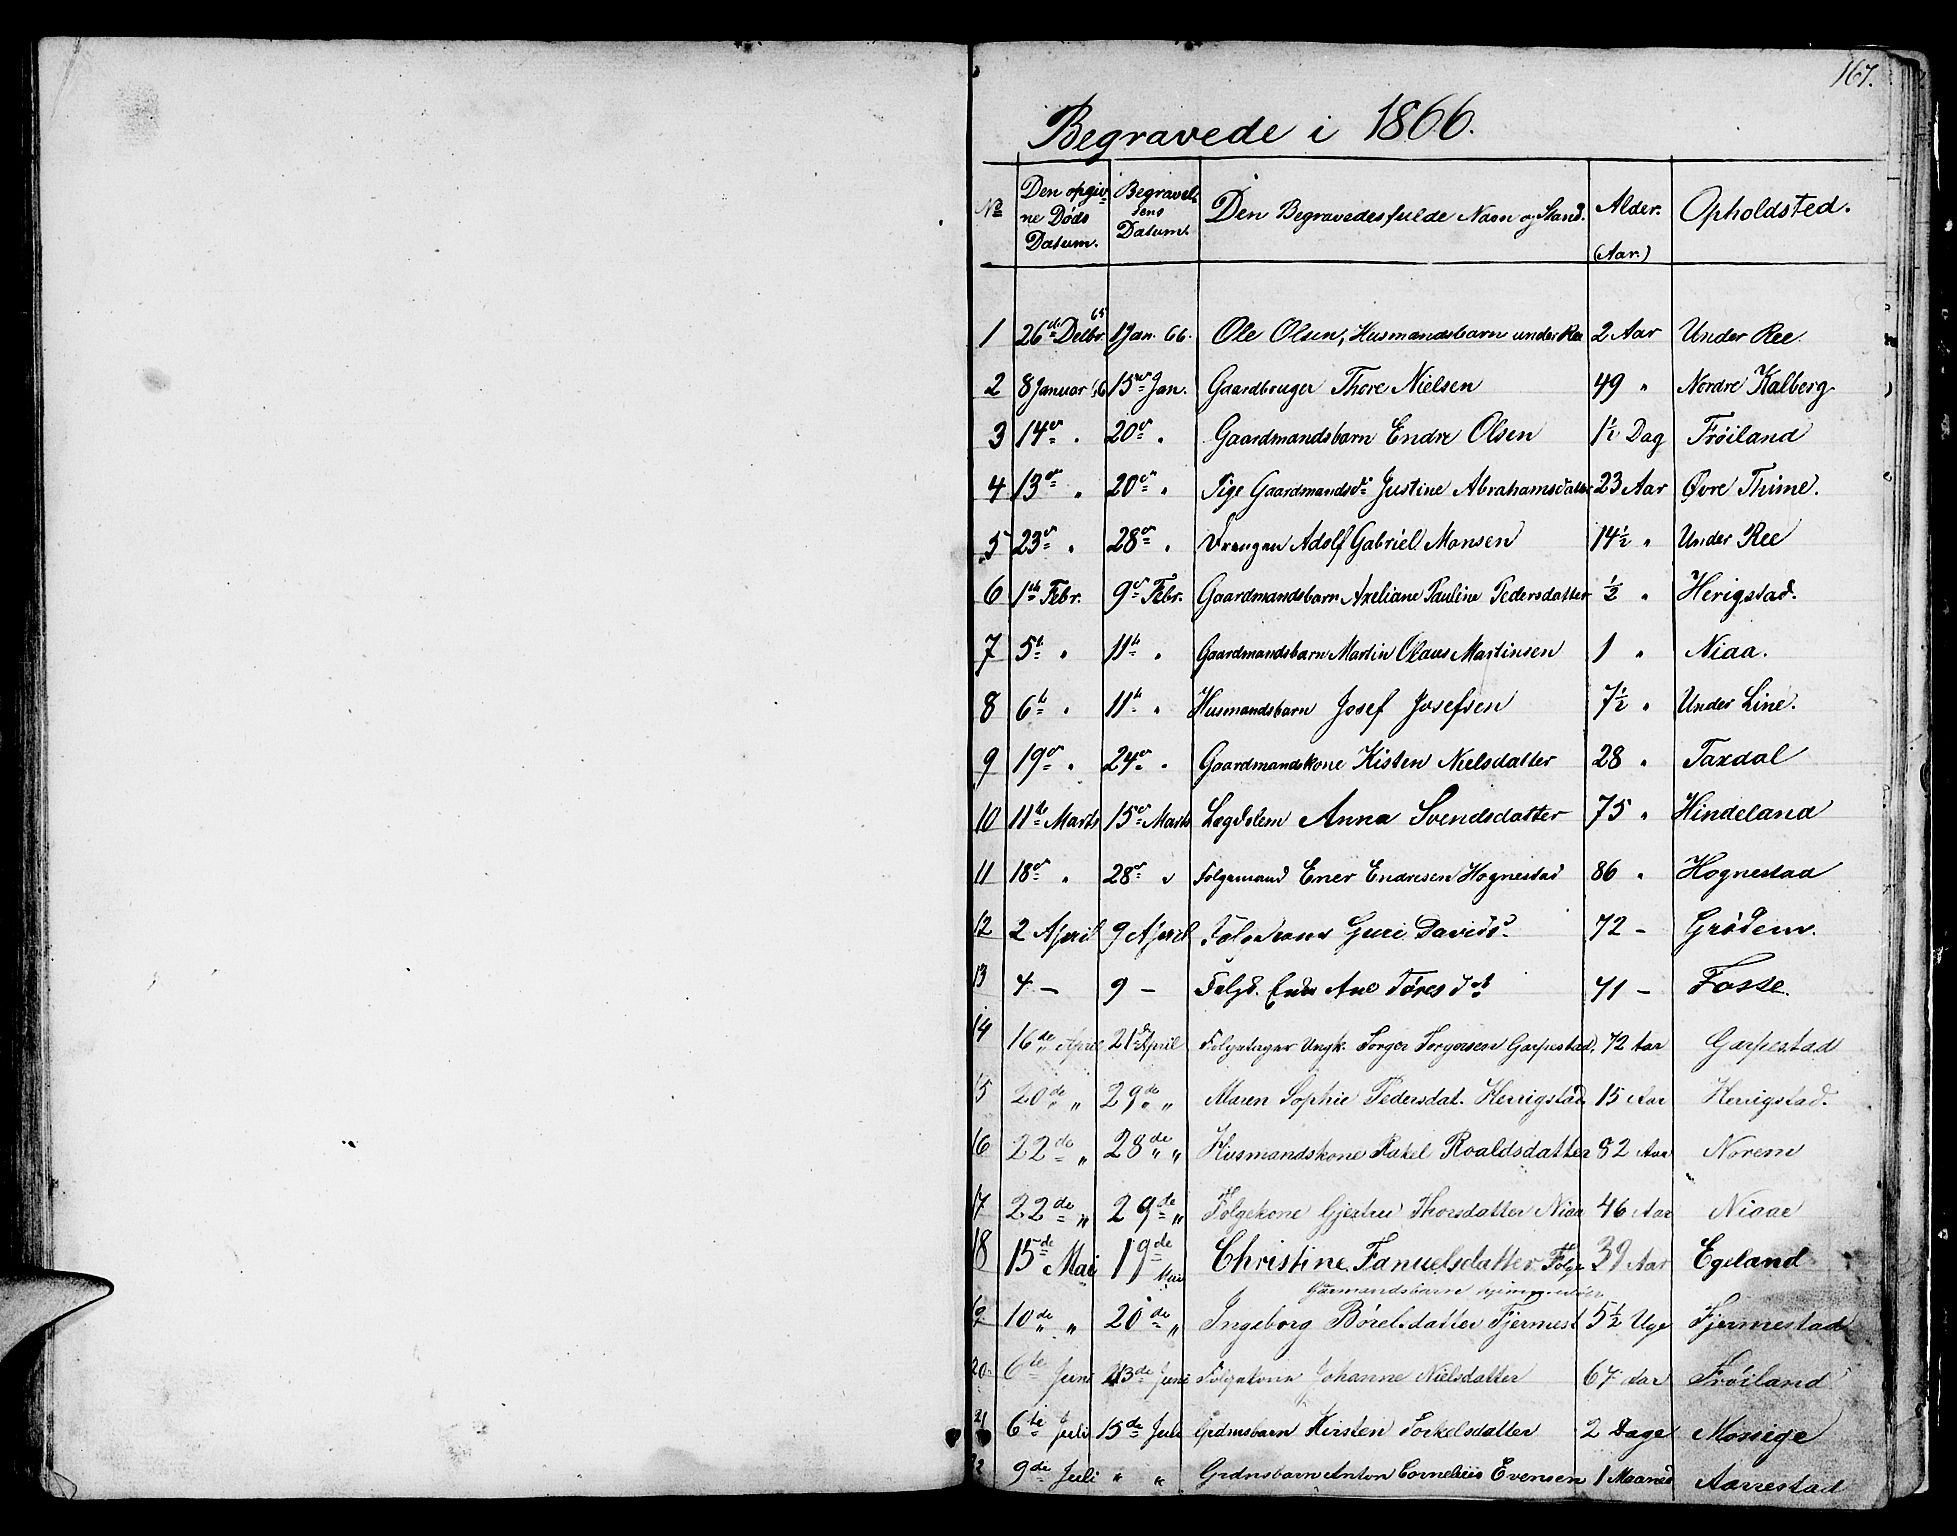 167.
Begravede i 1866.
No Den opgiv- Begravel- Den Begravedes fulde Navn og Stand. Alder. Opholdsted.
ne Döds sens (Aar.)
Datum. Datum.
1 26de Delbr. 65 1 Jan. 66. Ole Olsen, Husmandsbarn under Ree 2 Aar Under Ree.
2 8 Januar 66 15de Jan. Gaardbruger Thore Nielsen 49 " Nordre Kalberg
3 14de " 20de " Gaardmandsbarn Endre Olsen 1½ Dag Frøiland
4 13de " 20de " Pige Gaardmandsdr Justine Abrahamsdatter 23 Aar Øvre Thime.
5 23de " 28de " Drengen Adolf Gabriel Monsen 14½ " Under Ree
6 1ste Febr. 9de Febr. Gaardmandsbarn Axeliane Pauline Pedersdatter ½ " Herigstad.
7 5te " 11te " Gaardmandsbarn Martin Olaus Martinsen 1 " Niaa.
8 6te " 11te " Husmandsbarn Josef Josefsen 7½ " Under Line.
9 19de " 24de " Gaardmandskone Kisten Nielsdatter 28 " Taxdal
10 11te Marts 15de Marts Lægdslem Anna Svendsdatter 75 " Hindeland
11 18de " 28de " Folgemand Ener Endresen Hognestad 86 " Hognestad
12 2 April 9 April Guri Davidsd. 72 - Grødem.
13 4 - 9 - Folgd. Enke Ane Toresdtr 71 - Fosse.
14 16de April 21de April Folgetager Ungk. Torger Torgersen Garpestad, 72 Aar Garpestad
15 20de " 29de " Maren Sophie Pedersdat. Herrigstad 15 Aar Herrigstad.
16 22de " 28de " Husmandskone Rakel Roaldsdatter 82 Aar Norem
17 22de " 29de " Folgekone Gjertru Thorsdatter Niaa 46 Aar Niaae
18 15de Mai 19de Mai Christine Fanuelsdatter Folge 39 Aar Egeland
Garmandsbarn
19 10de " 20de " Ingeborg Børelsdatter Fjermest 5½ Uge Fjermestad
20 6te Juni 23de Juni Folgekone Johanne Nielsdatter 67 Aar Frøiland
21 6te Juli 15de Juli Grdmsbarn Kirsten Torkelsdatter 2 Dage Mossige
22 9de Juli " " Grdmsbarn Anton Cornelius Evensen 1 Maaned Aarrestad